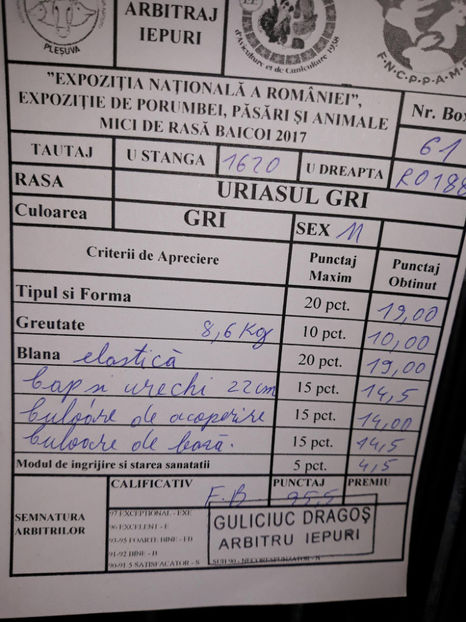 PLEȘUVA
ARBITRAJ
IEPURI
d'Aviculture et de Cuniculture 1938
F-N-C-P-P-A-M
"EXPOZIȚIA NAȚIONALĂ A ROMÂNIEI",
EXPOZIȚIE DE PORUMBEI, PĂSĂRI ȘI ANIMALE
MICI DE RASĂ BAICOI 2017
Nr. Box
61
TAUTAJ U STANGA 1620 U DREAPTA RO188
RASA URIASUL GRI
Culoarea GRI SEX M
Criterii de Apreciere Punctaj Maxim Punctaj Obtinut
Tipul si Forma 20 pct. 19,00
Greutate 8,6 Kg 10 pct. 10,00
Blana elastică 20 pct. 19,00
cap si urechi 22cm 15 pct. 14,5
culoare de acoperire 15 pct. 14,00
culoare de bază. 15 pct. 14,5
Modul de ingrijire si starea sanatatii 5 pct. 4,5
SEMNATURA ARBITRILOR
CALIFICATIV PUNCTAJ PREMIU
F.B 95,5
97 EXCEPTIONAL - EXE
96 EXCELENT - E
93-95 FOARTE BINE - FB
91-92 BINE - B
90-91 5 SATISFACATOR - S
SUB 90 - NECORESPUNZATOR - N
GULICIUC DRAGOȘ
ARBITRU IEPURI